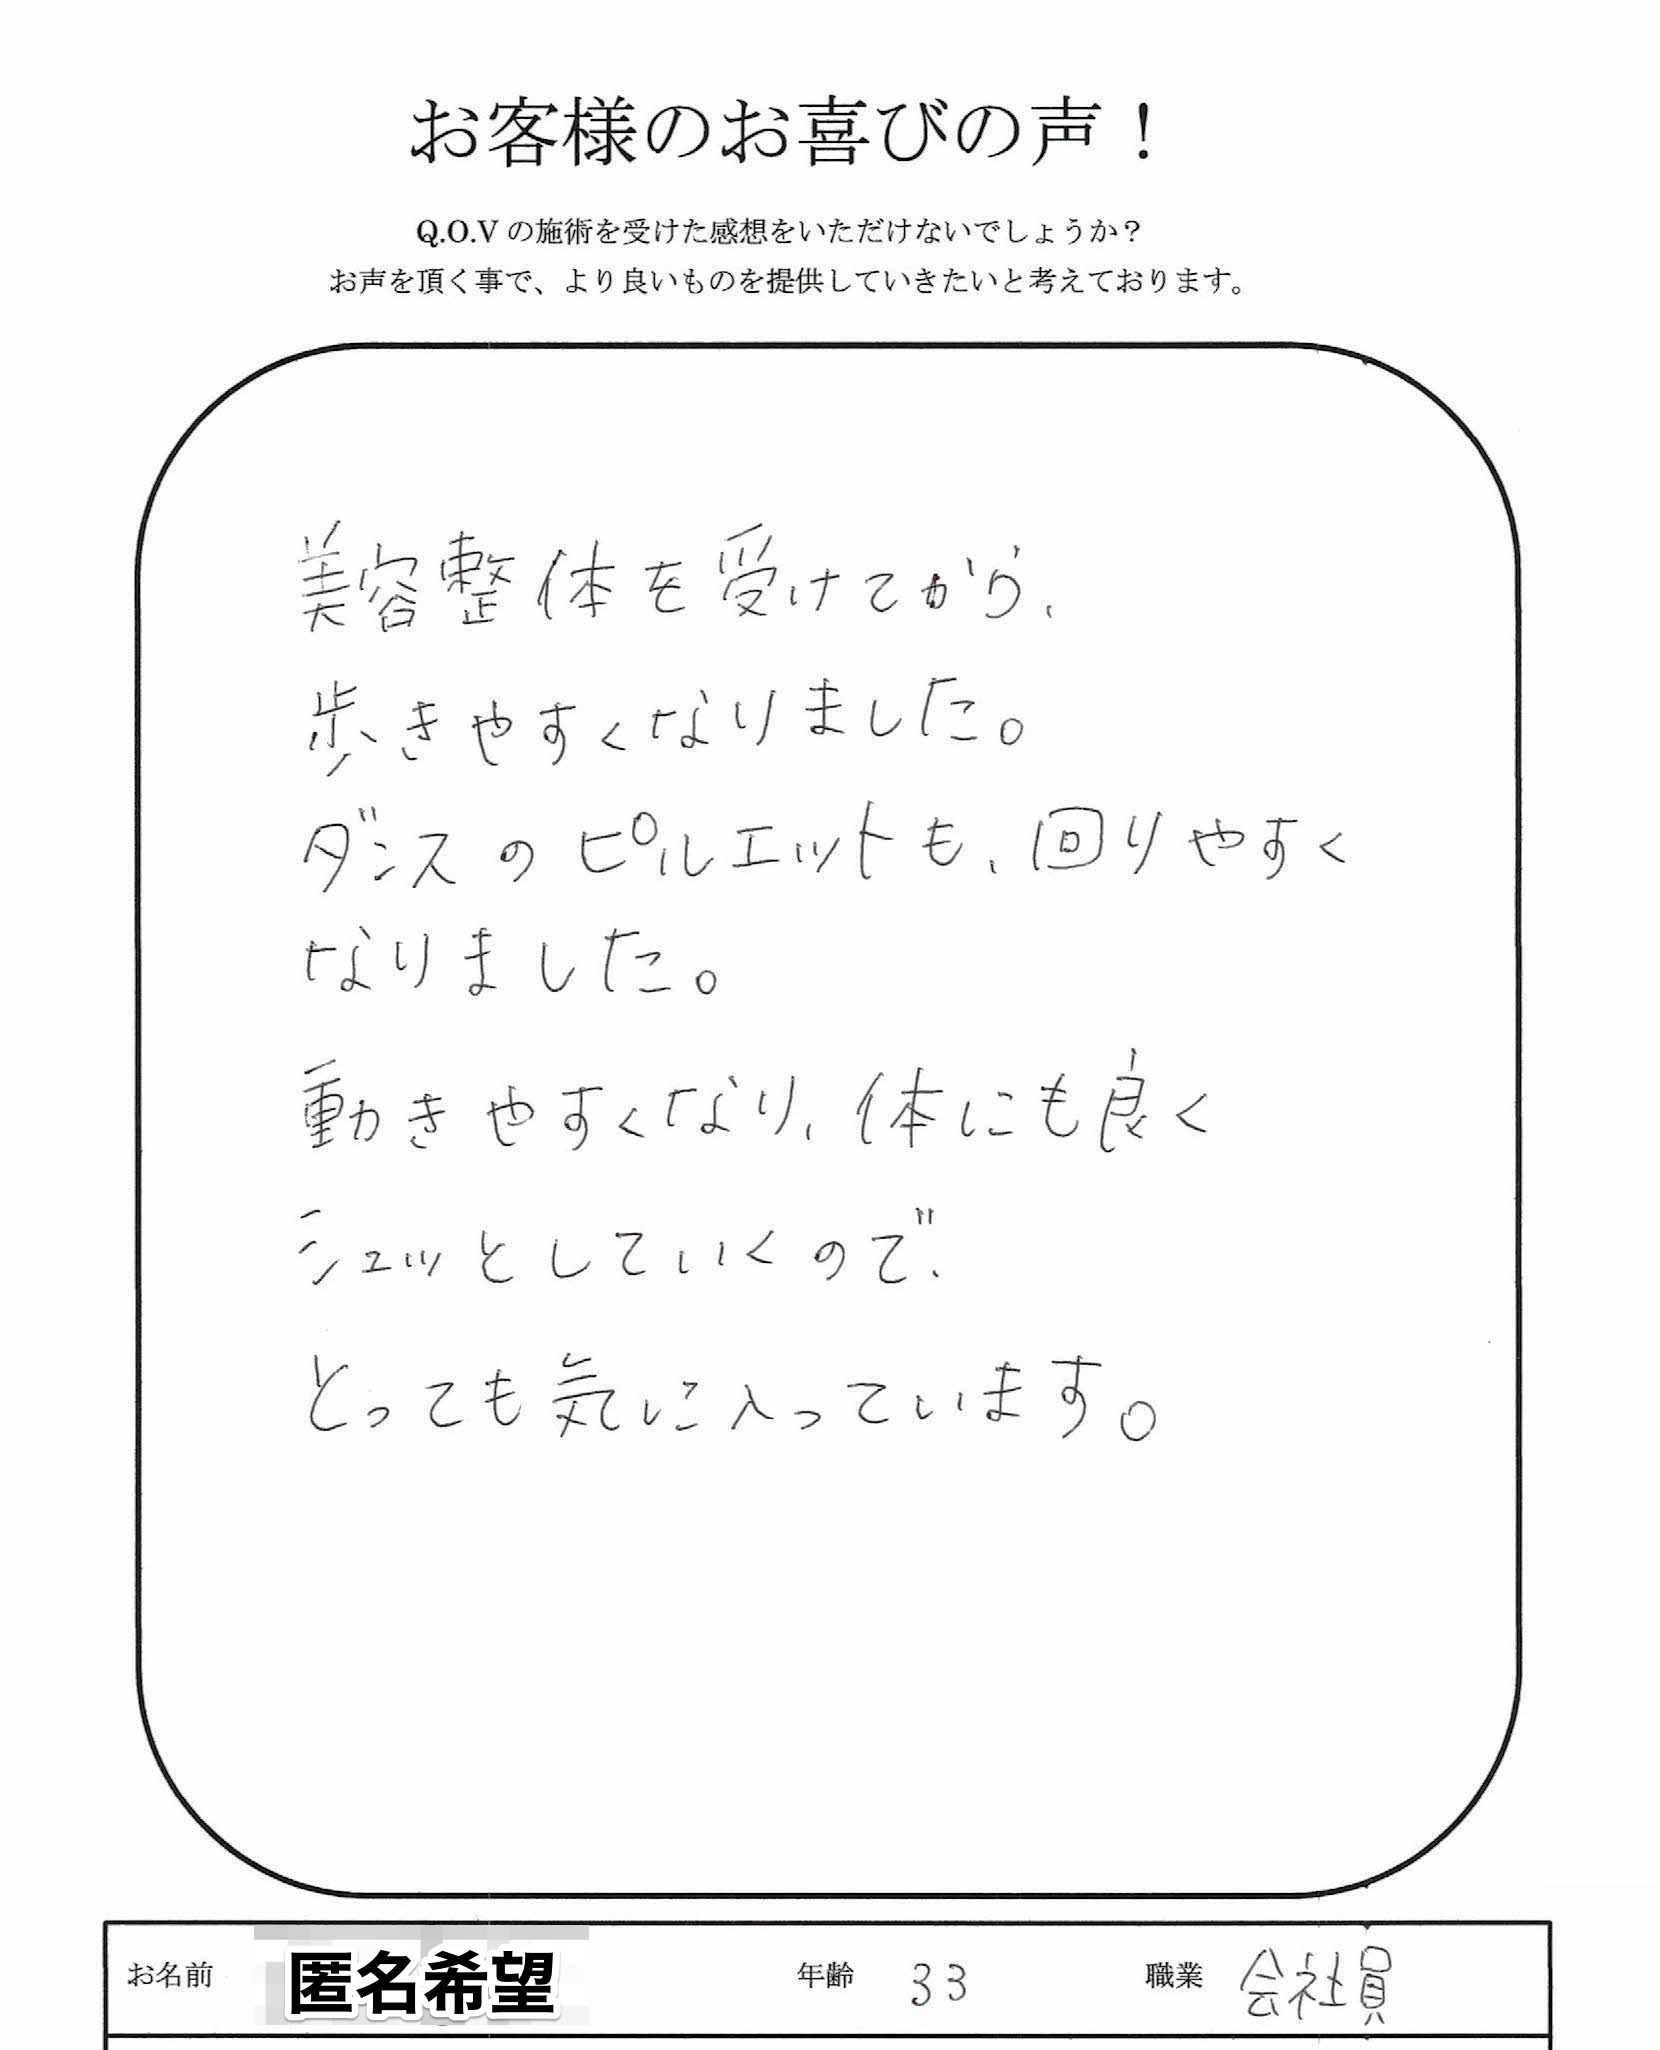 お客様のお喜びの声！
Q.O.Vの施術を受けた感想をいただけないでしょうか？
お声を頂く事で、より良いものを提供していきたいと考えております。
美容整体を受けてから、
歩きやすくなりました。
ダンスのピルエットも、回りやすく
なりました。
動きやすくなり、体にも良く
シュッとしていくので、
とっても気に入っています。
お名前 匿名希望 年齢 33 職業 会社員